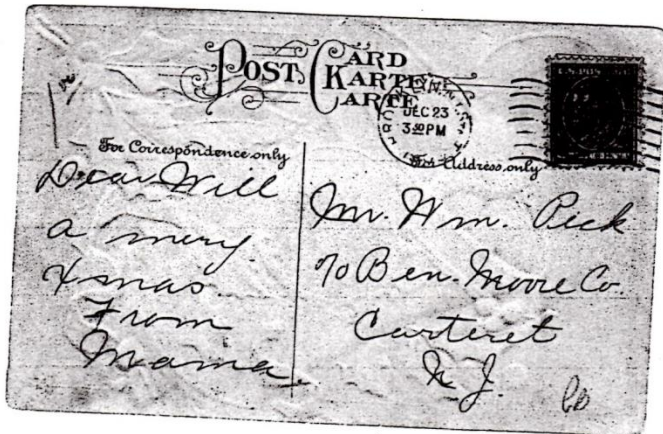 POST CARD
KARTE
CARTE
DEC 23
3 30 PM
For Correspondence only
For Address only
Dear Will
a mery
Xmas.
From
Mama.
Mr. Wm. Pick
c/o Ben. Moore Co.
Carteret
N. J.